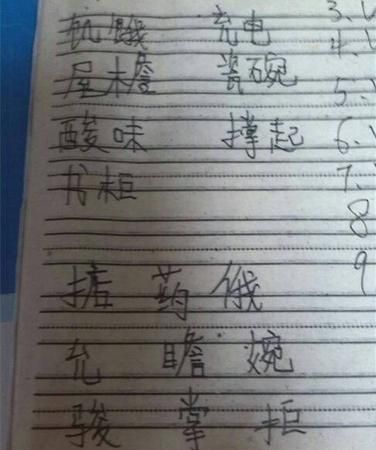 饥饿 充电 3.
屋檐 瓷碗 4.
5.
酸味 撑起 6.
书柜 7.
8
9
掂 药 俄
允 瞻 婉
骏 掌 拒